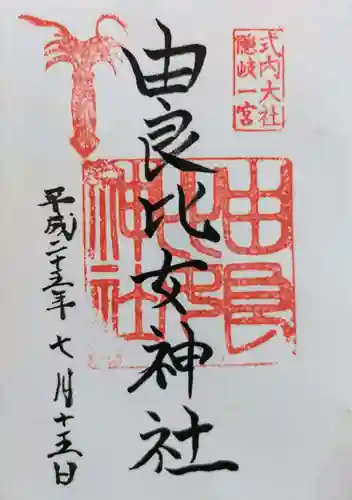 式内大社
隠岐一宮
由良比女神社
由良比女神社
平成二十五年七月十五日